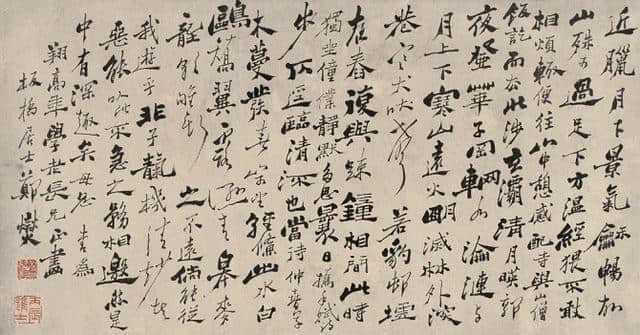 近臘月下景氣龢暢故
山殊可過足下方溫經猥不敢
相煩輒便往山中憩感配寺與山僧
飯訖而去北涉玄灞清月暎郭
夜登華子岡輞水淪漣與
月上下寒山遠火明滅林外深
巷寒犬吠聲若豹邨墟
夜舂復與疎鐘相間此時
獨坐僮僕靜默多思曩日攜手賦詩
步仄逕臨清流也當待仲春草
木蔓發春山可望輕鯈出水白
鷗矯翼露濕青皋麥
隴朝雊斯之不遠儻能從
我遊乎非子天機清妙者
惡能以此不急之務相邀然是
中有深趣矣毋忽 書為
翔高年學老長兄正畫
板橋居士鄭燮